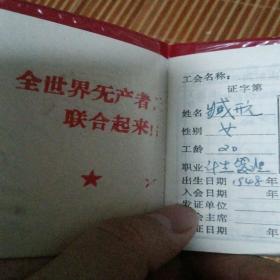 全世界无产者,
联合起来!
工会名称:
证字第
姓名
性别 女
工龄 20
职业
出生日期 1948年
入会日期 年
发证单位
会主席
证日期 年